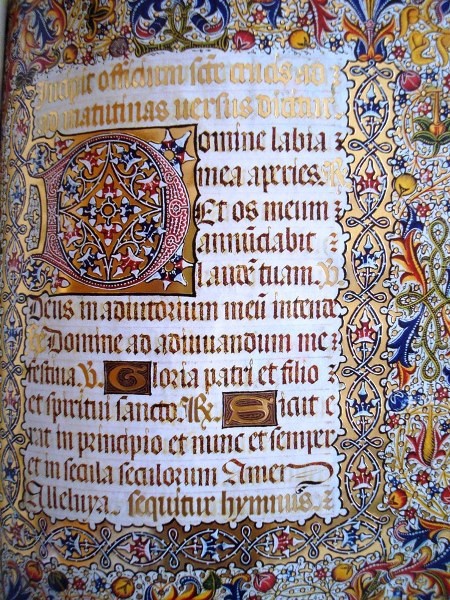 Incipit officium scẽ crucis ad
ad matutinas uersus dicitur
Domine labia
mea aperies. R
Et os meum
annũciabit
laudẽ tuam. V
Deus in adiutorium meũ intende
R Domine ad adiuuandum me
festina. V. Gloria patri et filio
et spiritui sancto. R. Sicut e
rat in principio et nunc et semper
et in secula seculorum Amen
Alleluya. sequitur hymnus.